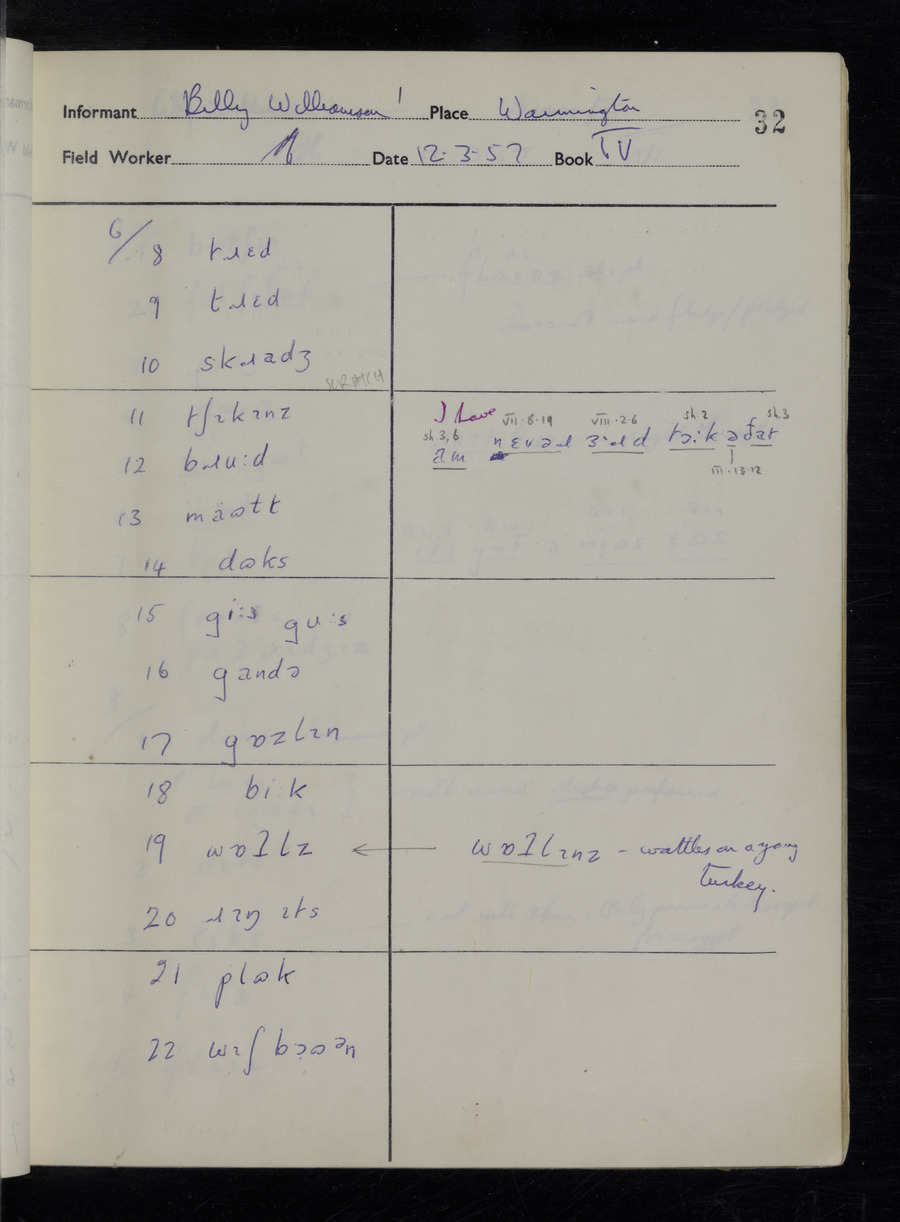 Informant Billy Williamson Place Warmington 32
Field Worker Date 12-3-57 Book IV
6/8 tɹɛd
9 tɹɛd
10 skɹadʒ
SCRATCH
11 tʃɪkɪnz
12 bɹuːd
13 mäɷtt
14 dɷks
15 giːs guːs
16 gandə
17 gɒzlɪn
18 biːk
19 wɒʔlz ← wɒʔlɪnz - wattles on a young
turkey.
20 ɹɪŋ ɪts
21 plɷk
22 wɪʃ bɔɷən
I have VII·8·19 VIII·2·6 sh.2 sh.3
sh.3,6
am nɛvəɹ ɜːɹd tɔːk ə ðat
III·13·12